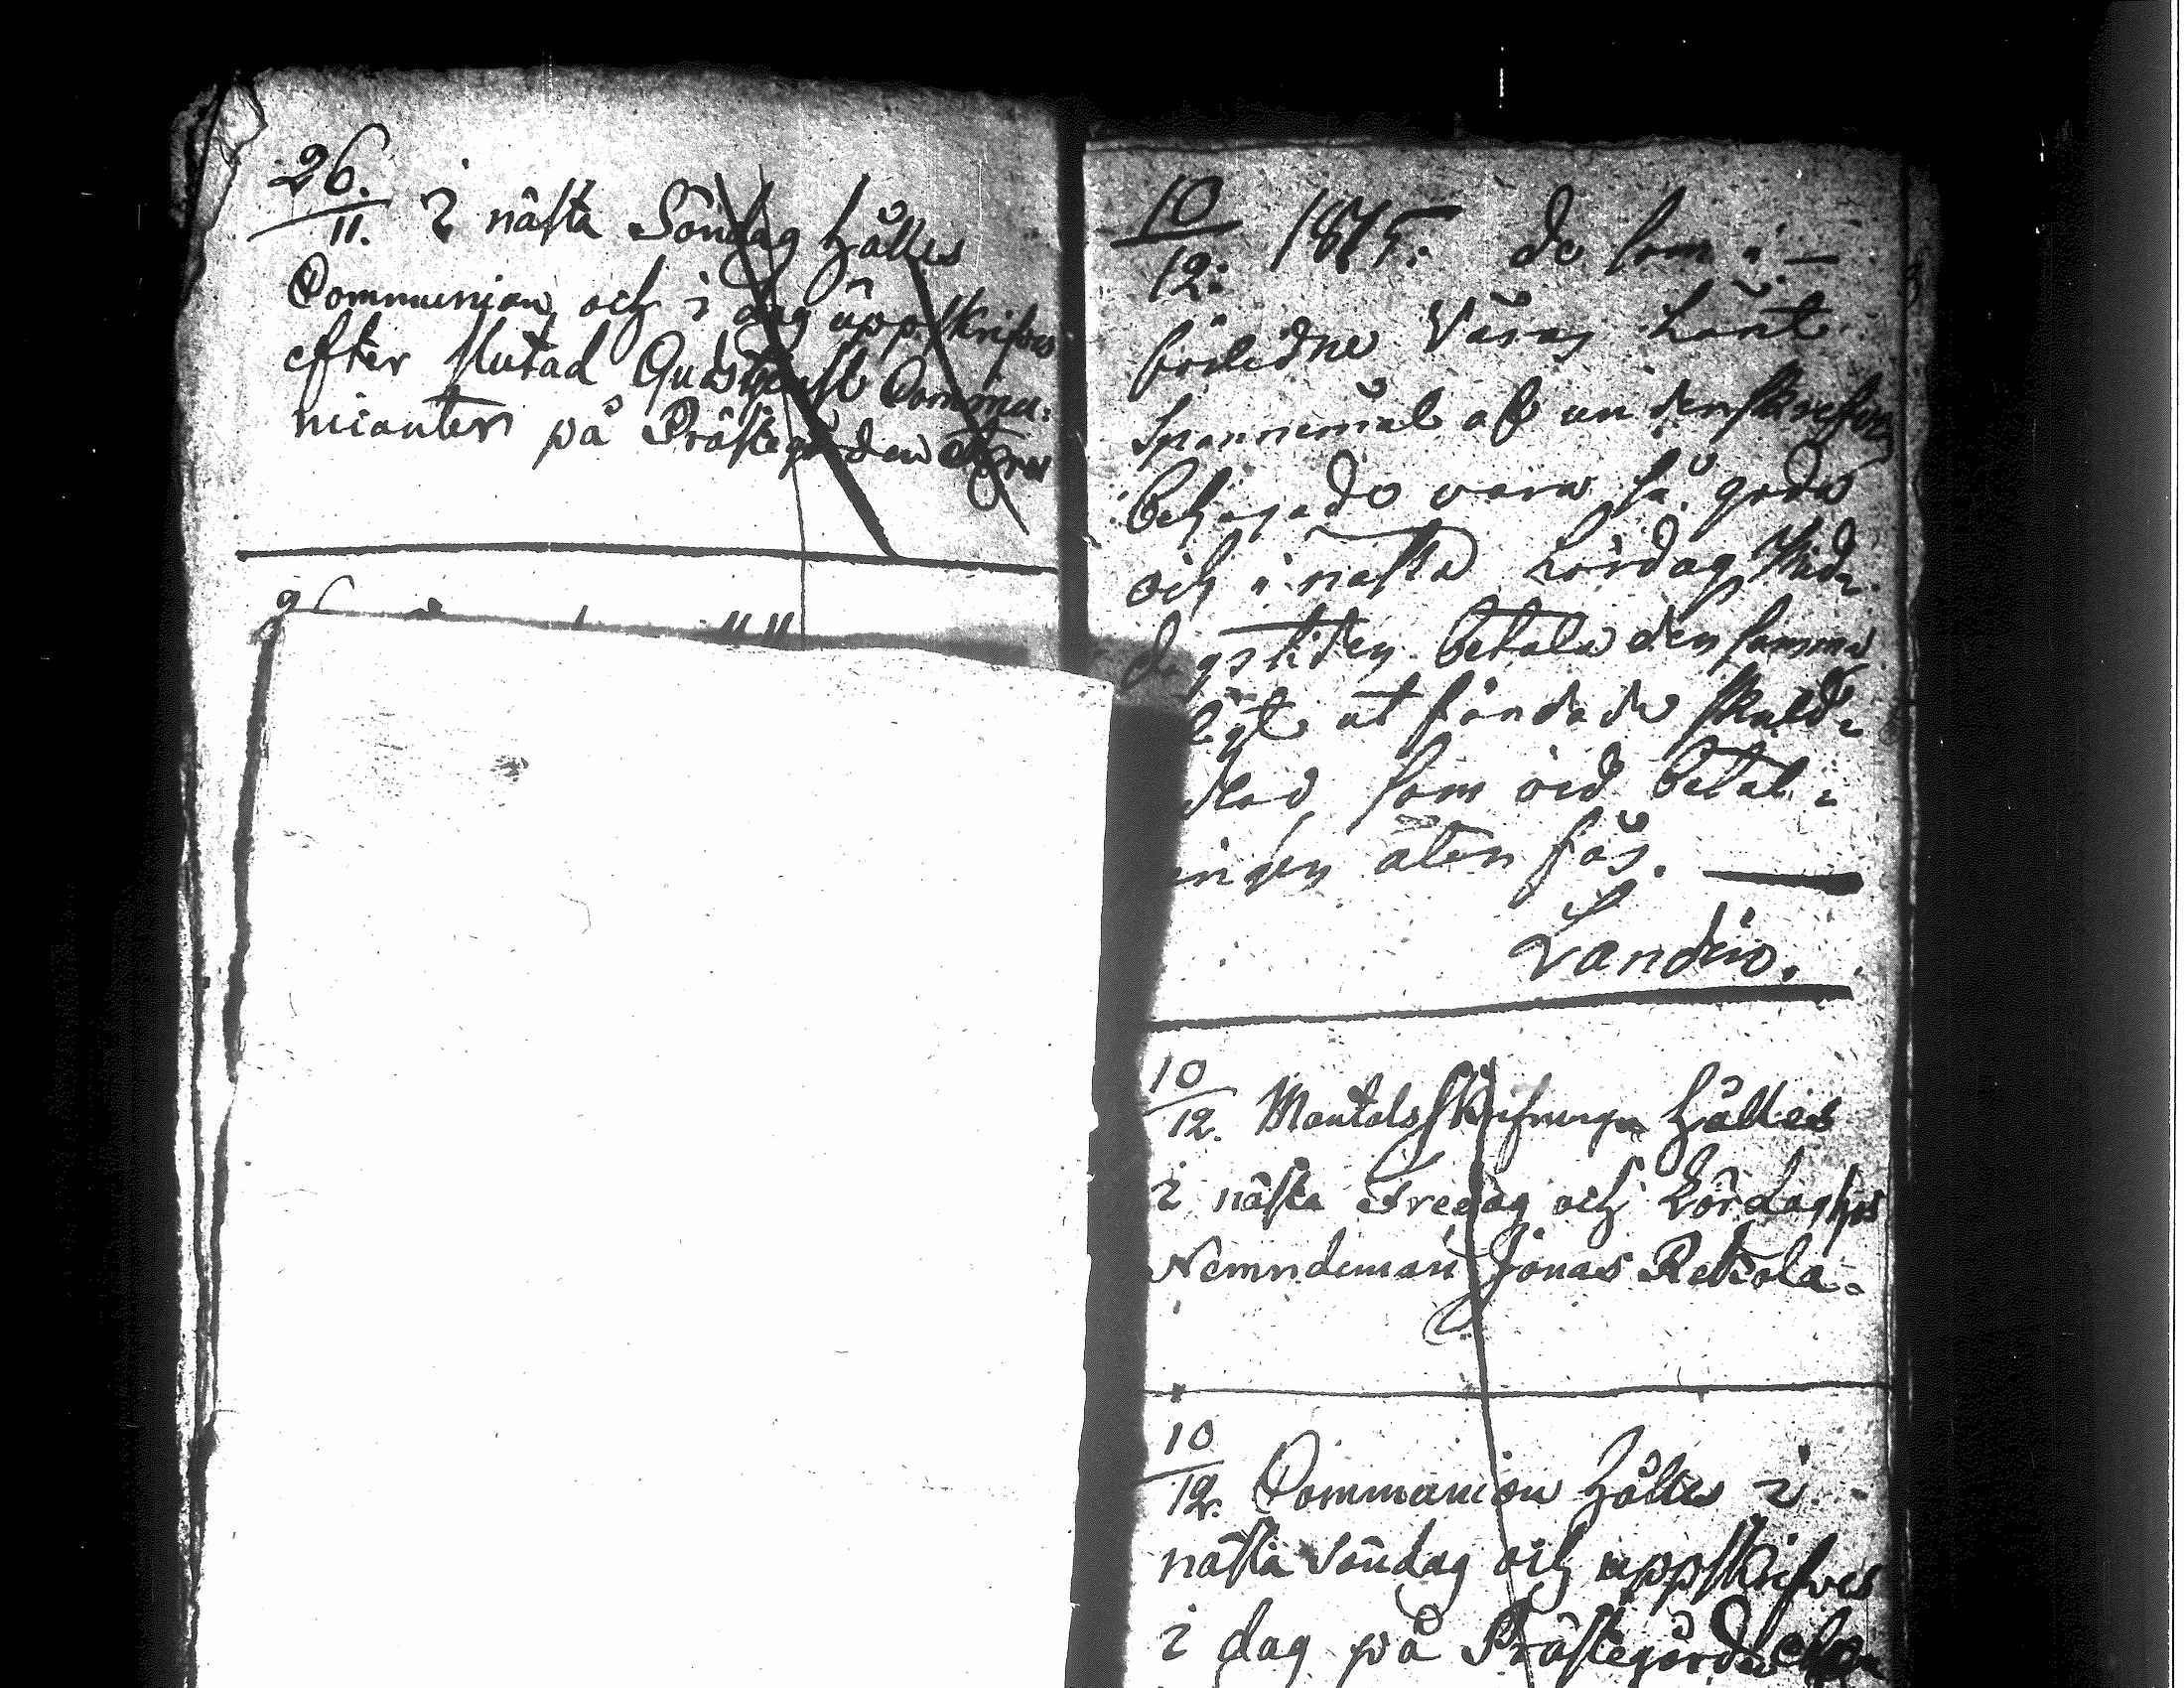 26.
11. I nästa Söndag hålles
Communion och i dag uppskrifves
efter slutad Gudstjenst Commu:
nicanter på Prästegården
10
12. 1815. de som i
förledne Våras länt
Spannemål af undenskrefven
behagade vara så goda
och i nästa Lördag Mid-
dagstiden betala den samma
at få de skuld-
som vid betal-
ningen åter fås.
Landin.
10
12. Mantalsskrifningen hålles
i nästa Fredag och Lördag hos
Nemndeman Jonas Retsola.
10
12. Communion hålles i
nästa Söndag och uppskrifves
i dag på Prästegården